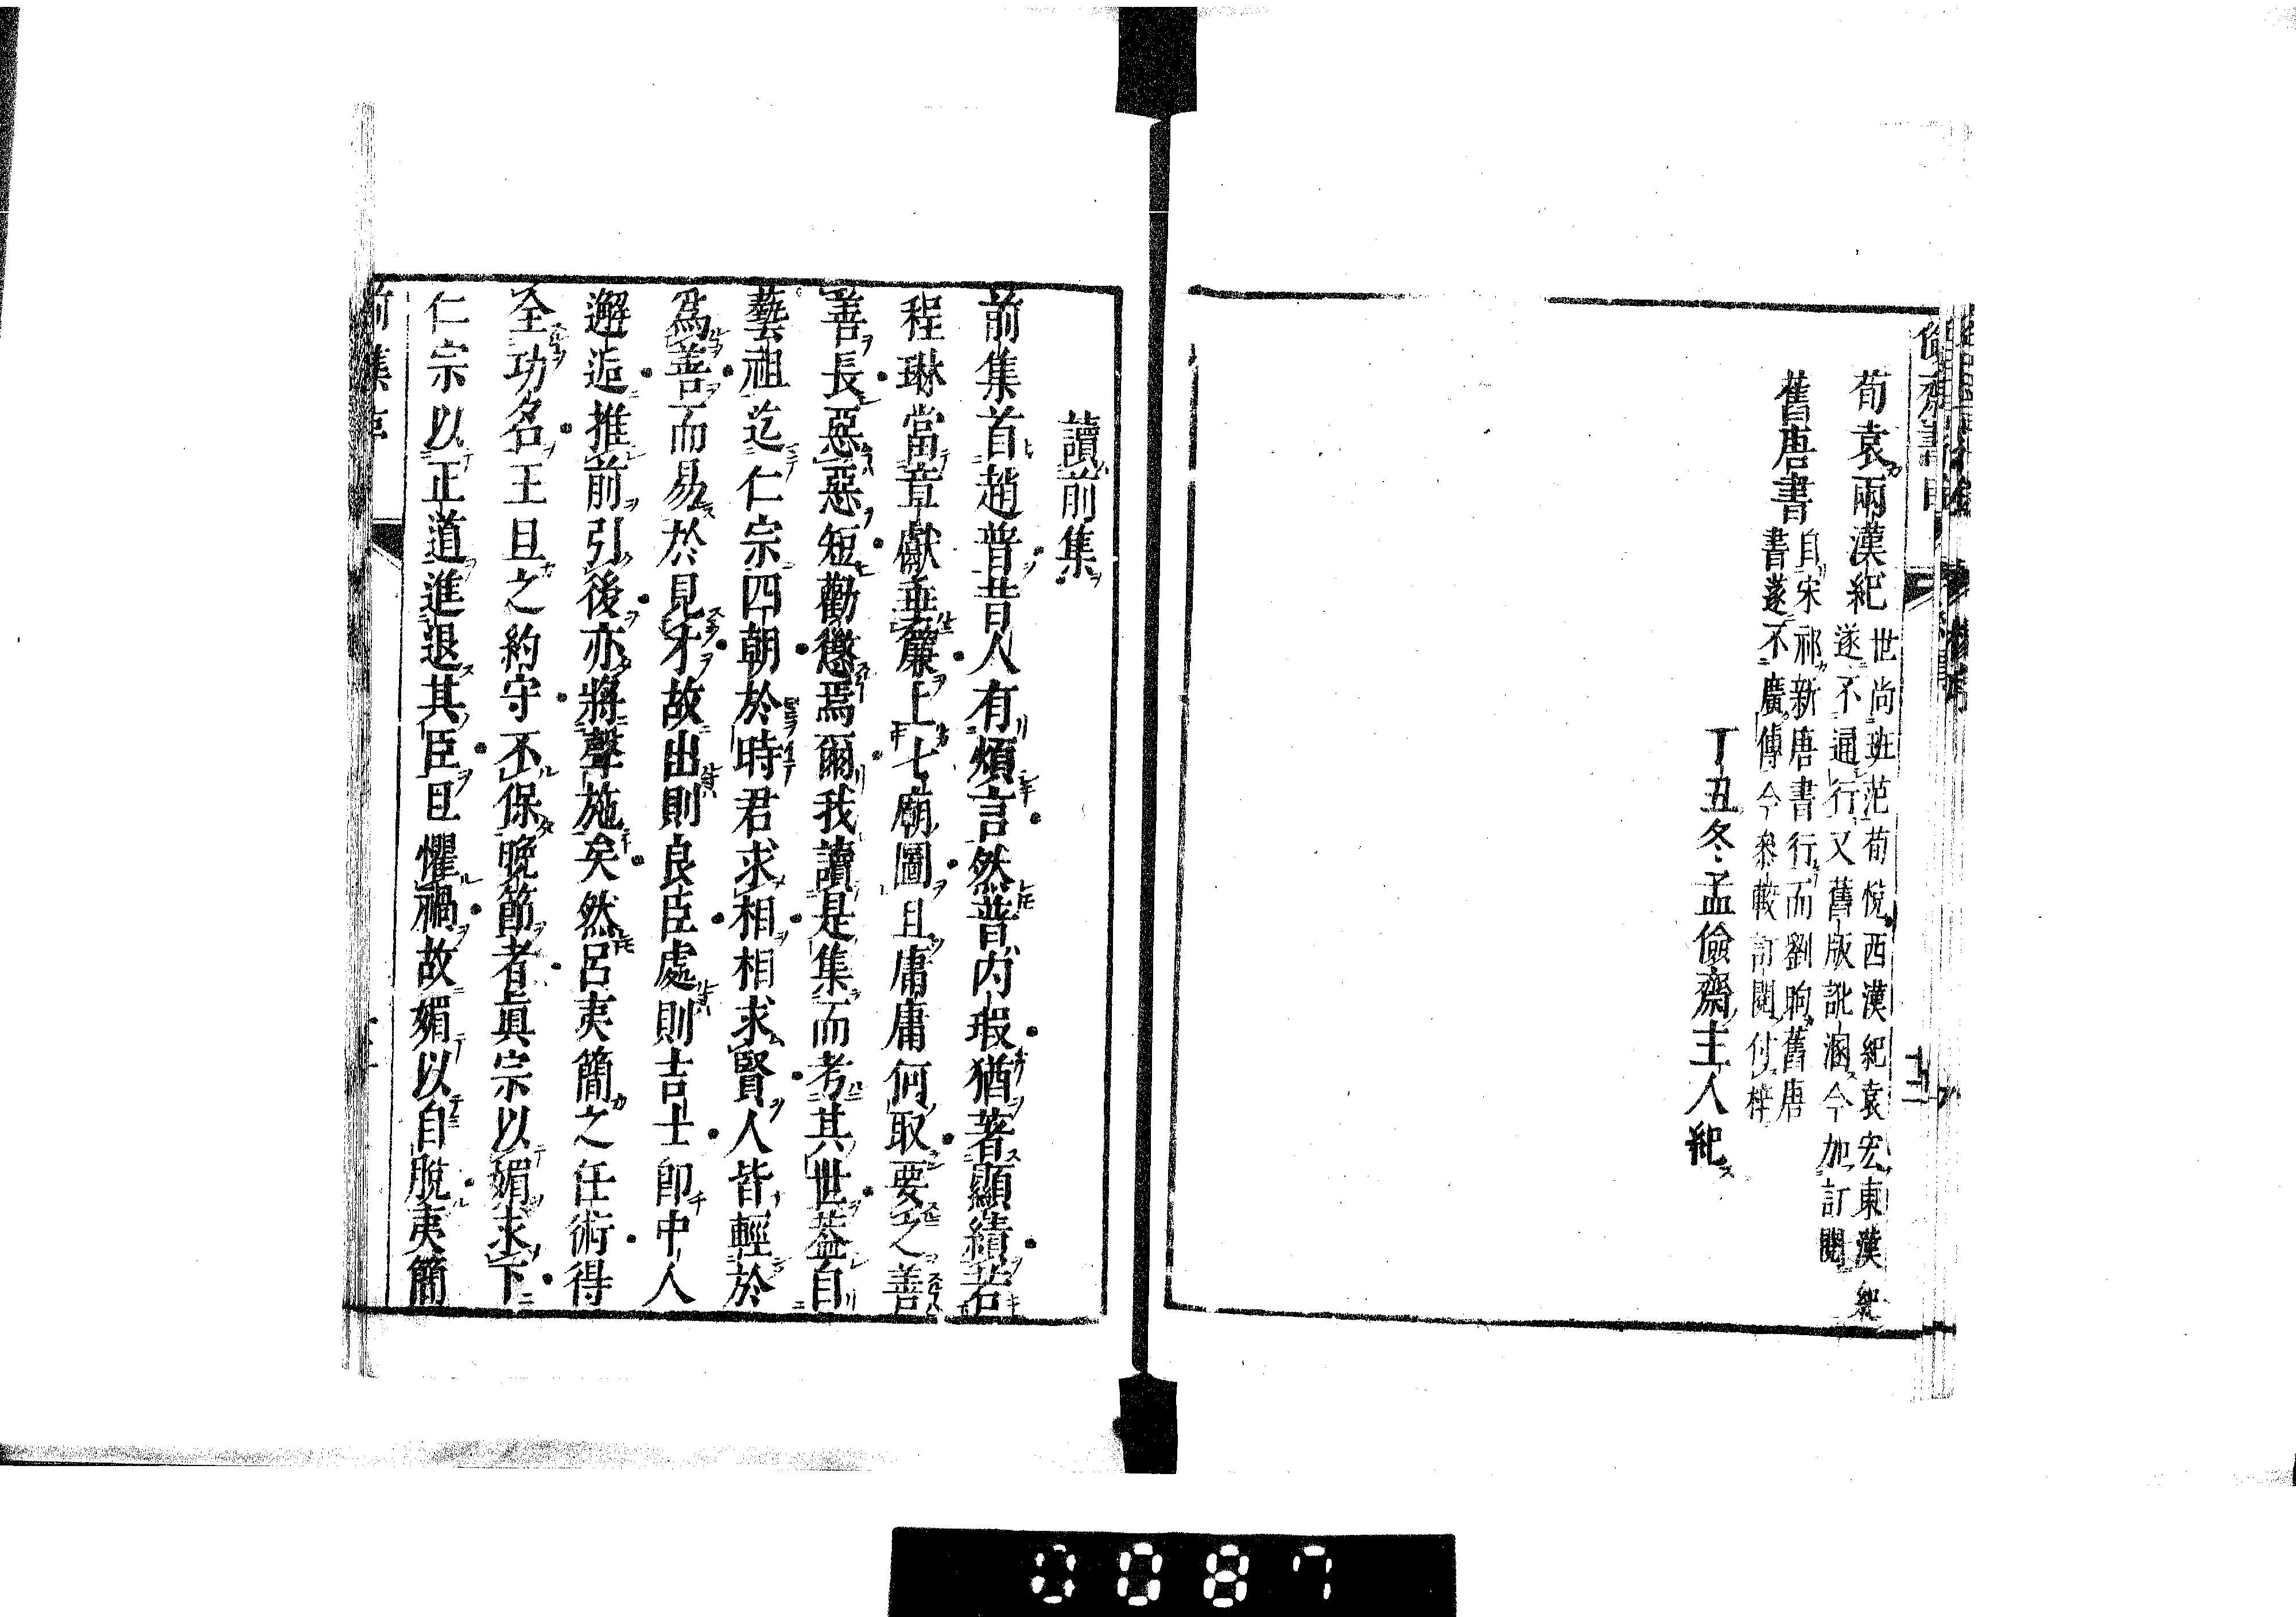 荀袁兩漢紀
世尚班范荀悅西漢紀袁宏東漢紀
遂不通行又舊版訛溷今加訂閱
舊唐書
自宋祁新唐書行而劉昫舊唐
書遂不廣傳今叅較訂閱付梓
丁丑冬孟儉齋主人紀
讀前集
前集首趙普昔人有煩言然普內瑕猶著顯績若
程琳當章獻垂簾上七廟圖且庸庸何取要之善
善長惡惡短勸懲焉爾我讀是集而考其世葢自
藝祖迄仁宗四朝於時君求相相求賢人皆輕於
爲善而易於見才故出則良臣處則吉士卽中人
邂逅推前引後亦將聲施矣然呂夷簡之任術得
全功名王旦之約守不保晚節者眞宗以媚求下
仁宗以正道進退其臣旦懼禍故媚以自脫夷簡
0087